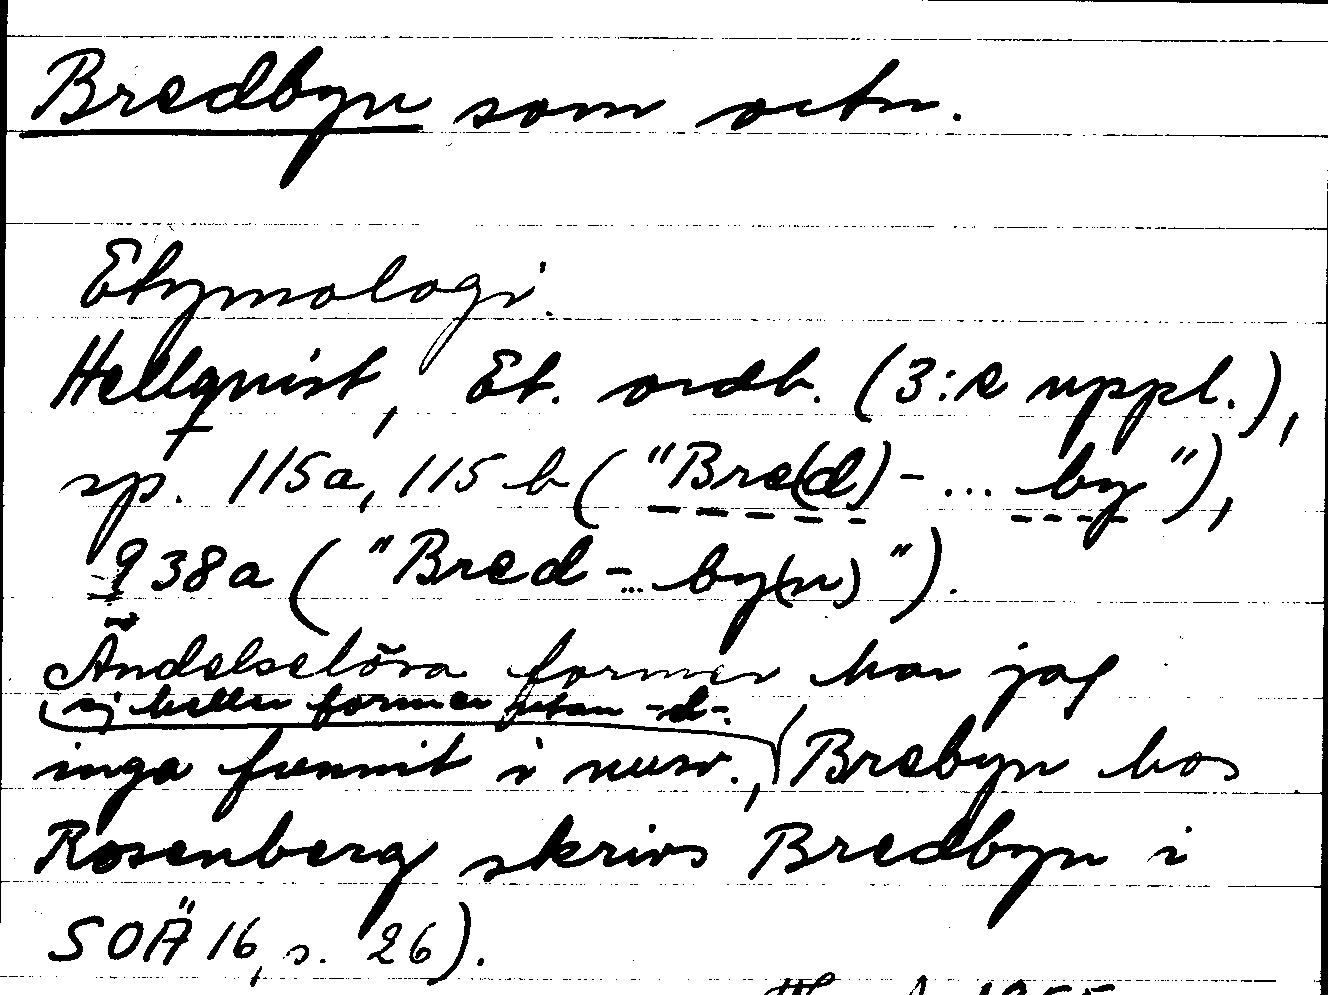 Bredbyn som ortn.
Etymologi.
Hellquist, Et. ordb. (3:e uppl.),
sp. 115a, 115 b ("Bre(d)- ... by"),
938a ("Bred- ... by(n)").
Ändelselösa former har jag
ej heller former utan -d-.
inga funnit i nusv., (Brebyn hos
Rosenberg skrivs Bredbyn i
SOÄ 16, s. 26).